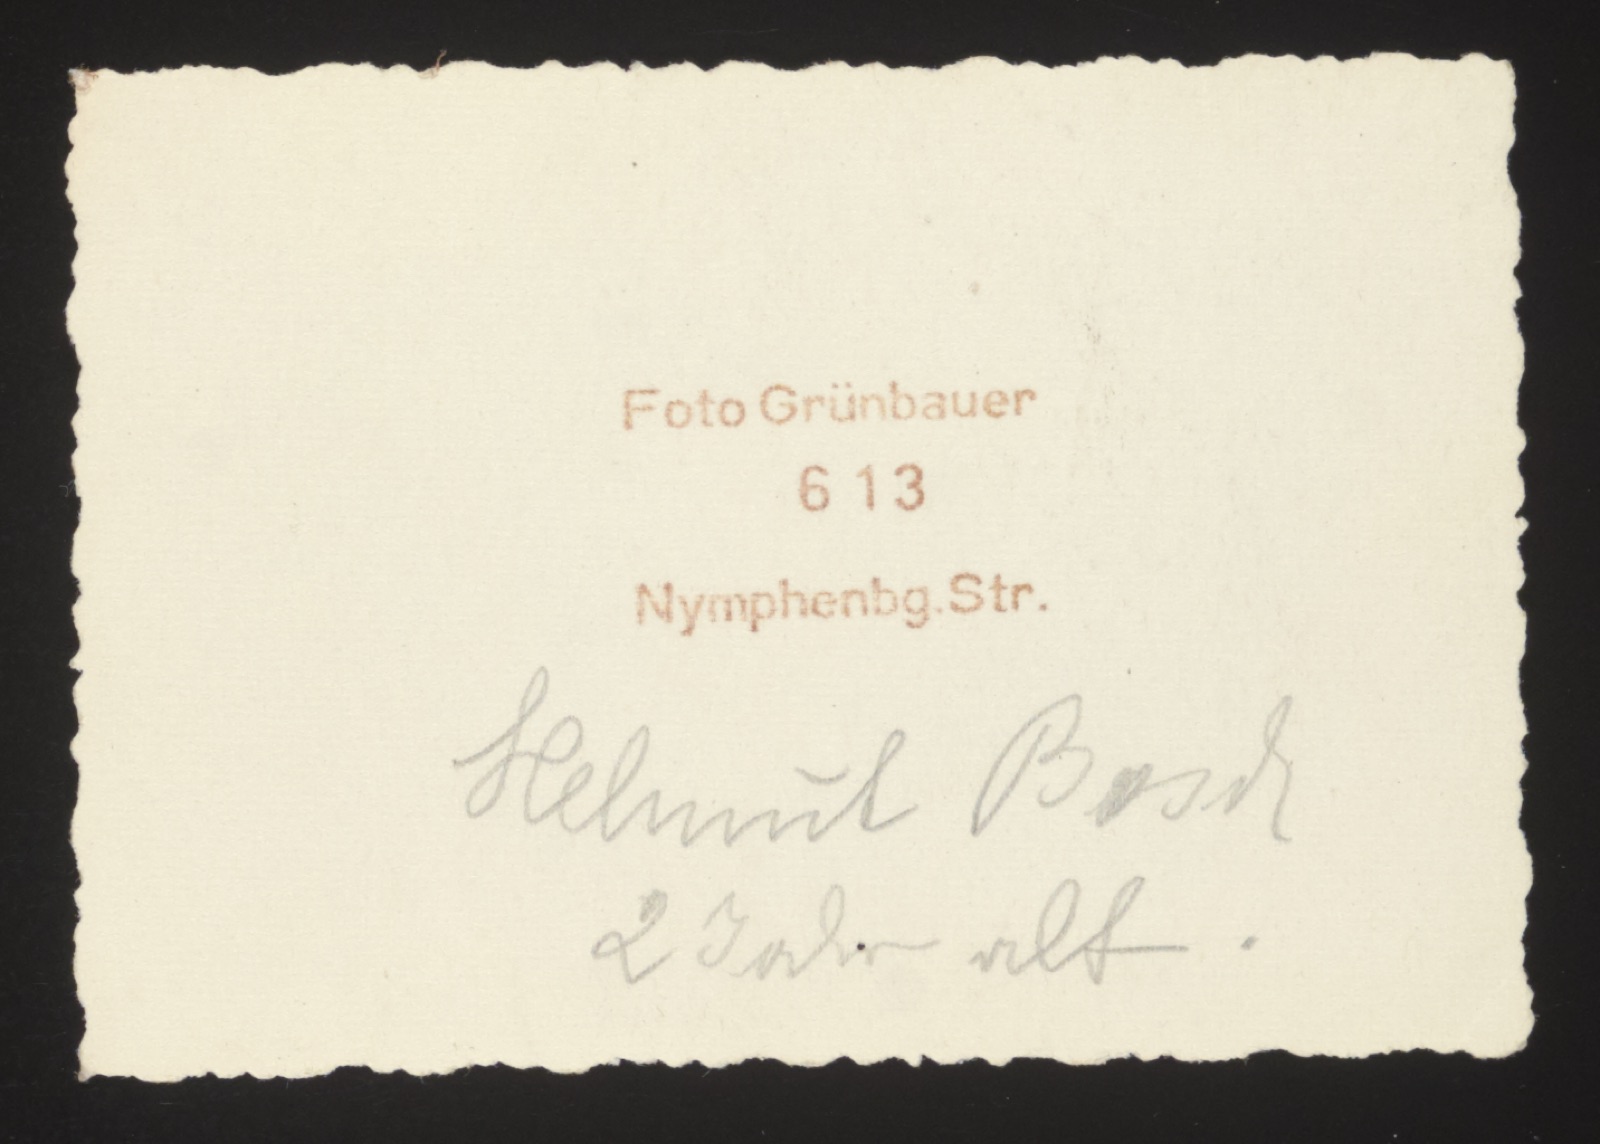 Foto Grünbauer
613
Nymphenbg.Str.
Helmut Bosch
2 Jahr alt.